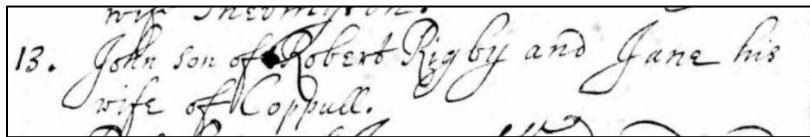 wife
13. John son of Robert Rigby and Jane his
wife of Coppull.